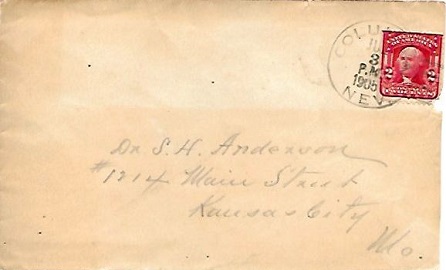 COLU
JU
3
P.M
1905
NEV
UNITED STATES
OF AMERICA
2 2
TWO CENTS
Dr. S. H. Anderson
#1214 Main Street
Kansas City
Mo.